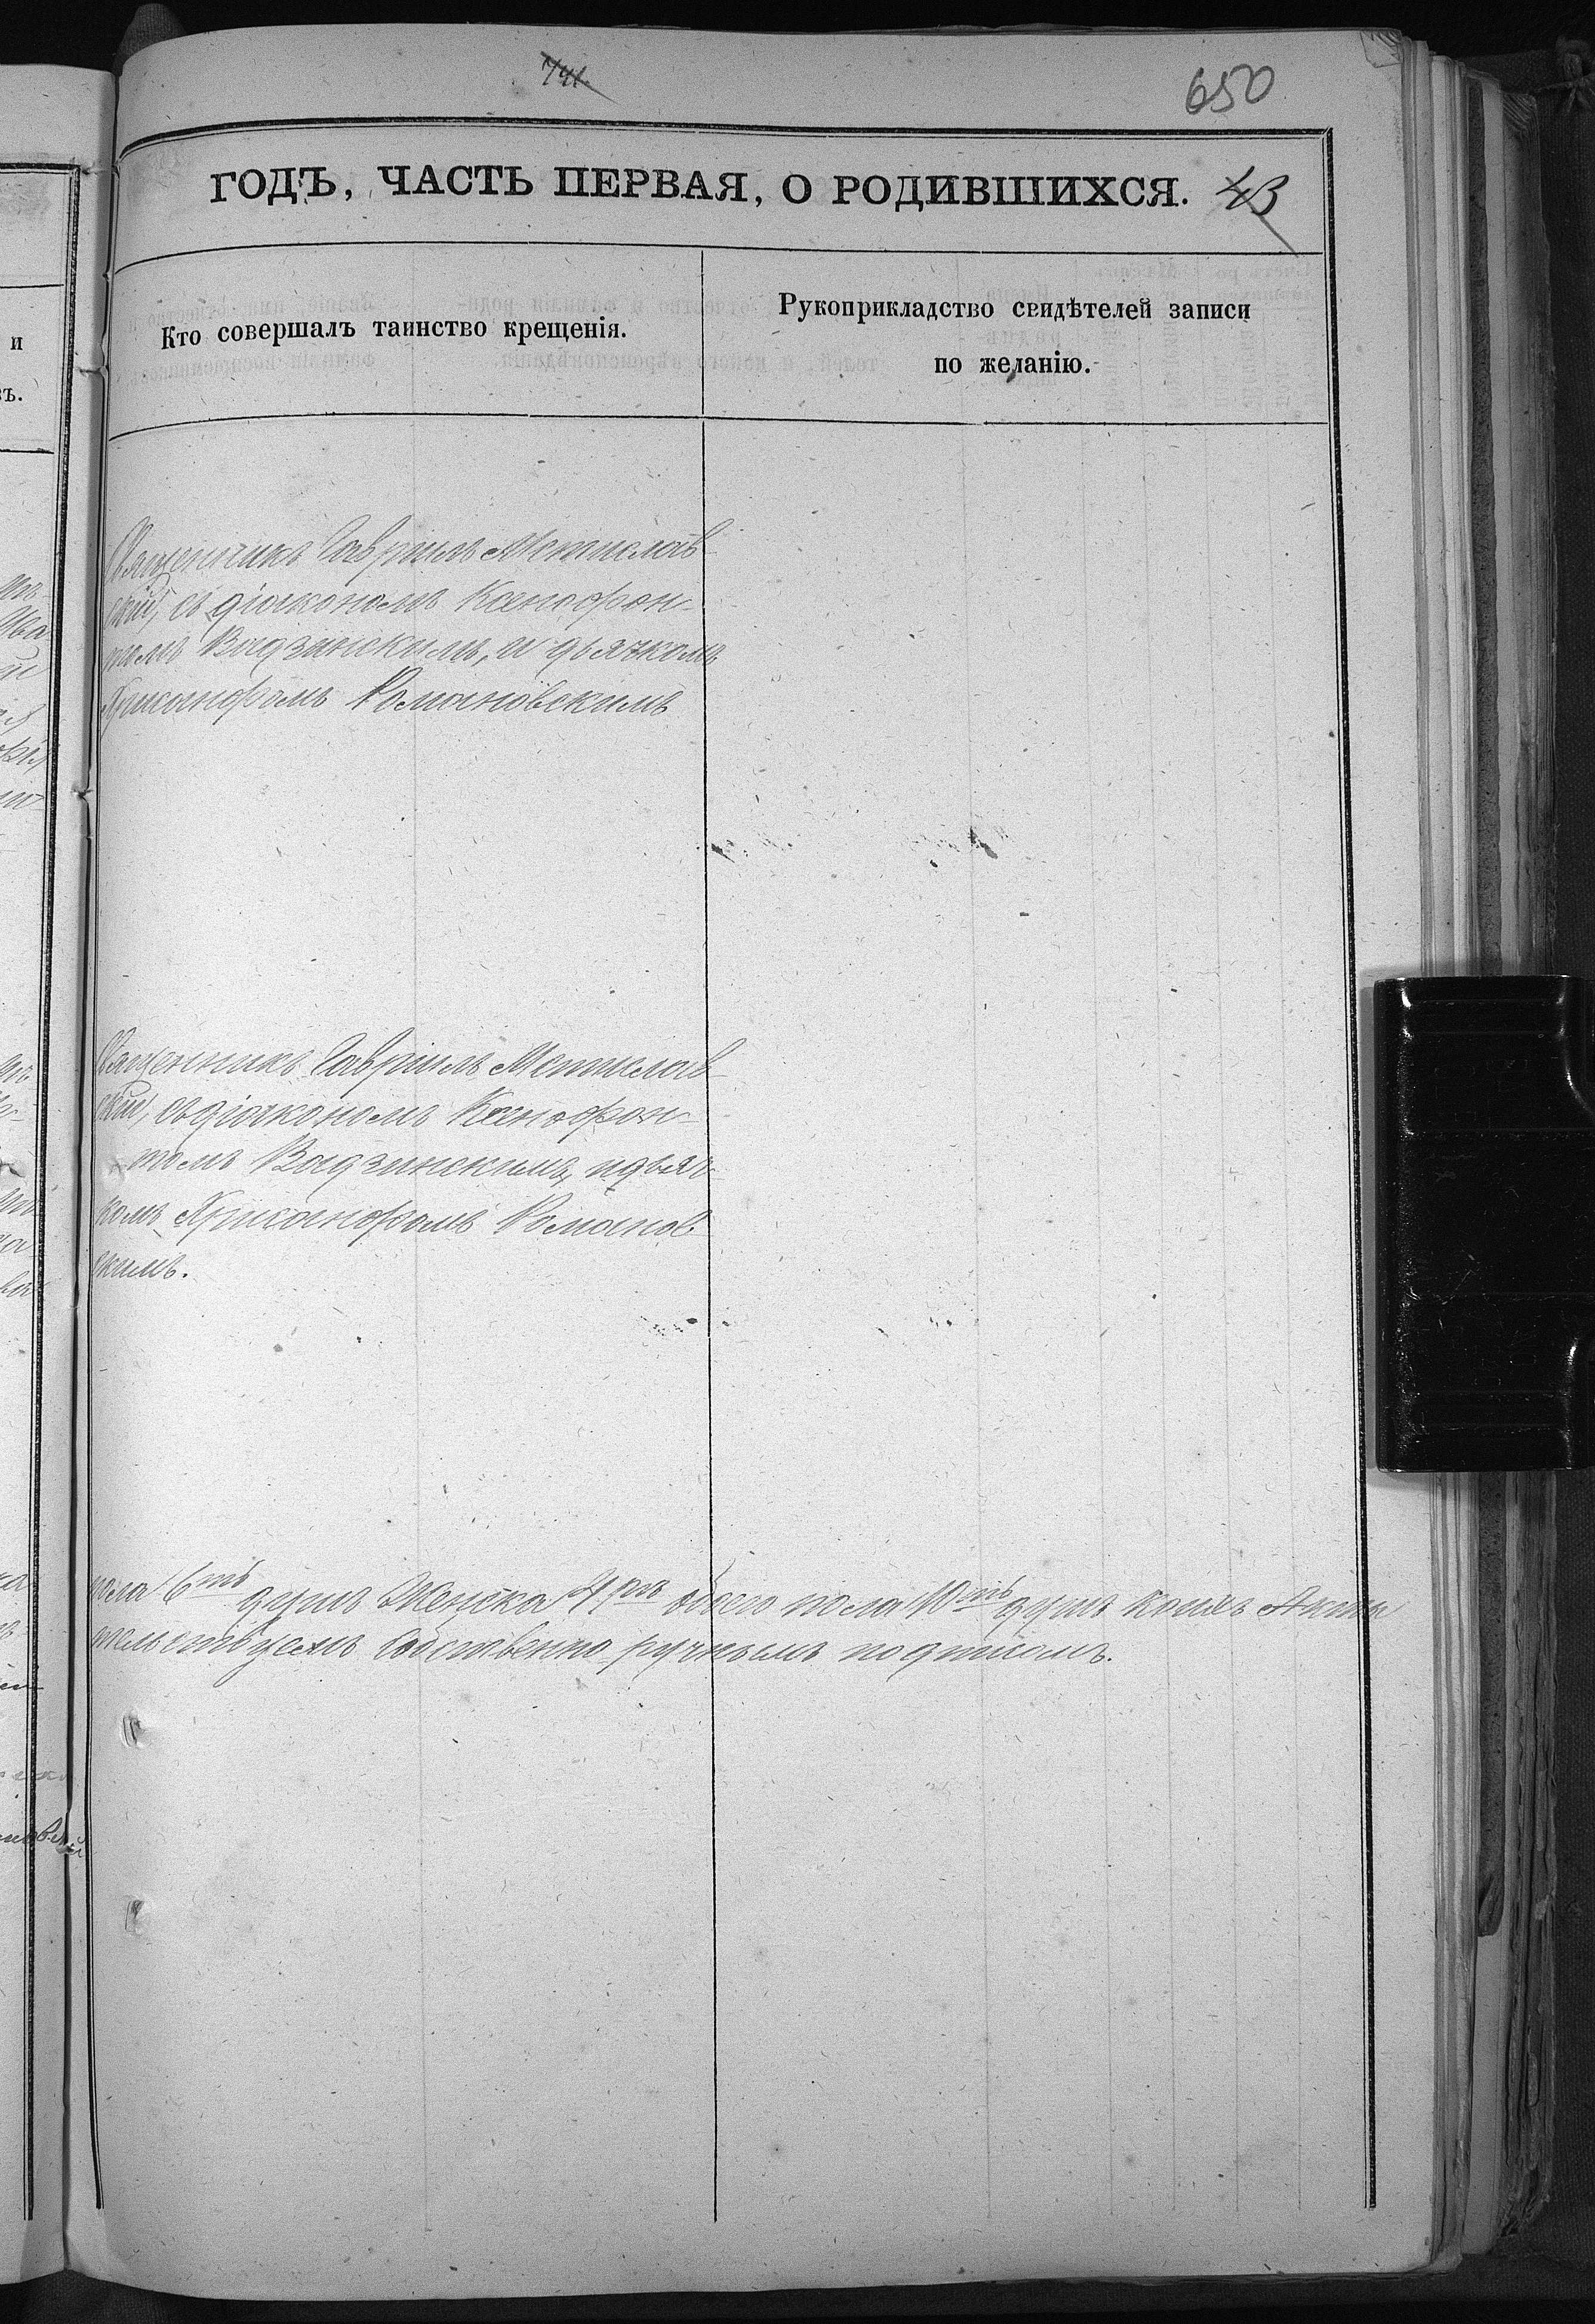 741.
650
ГОДЪ, ЧАСТЬ ПЕРВАЯ, О РОДИВШИХСЯ. 43
Кто совершалъ таинство крещенія.
Рукоприкладство свидѣтелей записи
по желанію.
Священникъ Гавріилъ Мстислав-
скій, съ діакономъ Ксенофон-
томъ Вадзинскимъ, и дьячкомъ
Никаноромъ Романовскимъ
Священникъ Гавріилъ Мстислав-
скій, съ діакономъ Ксенофон-
томъ Вадзинскимъ, и дьяч-
комъ Никаноромъ Романов
скимъ.
пола 6ть душъ Женска 4ре обоего пола 10ть душъ коихъ Акты
тельствуемъ собственно ручнымъ подписомъ.